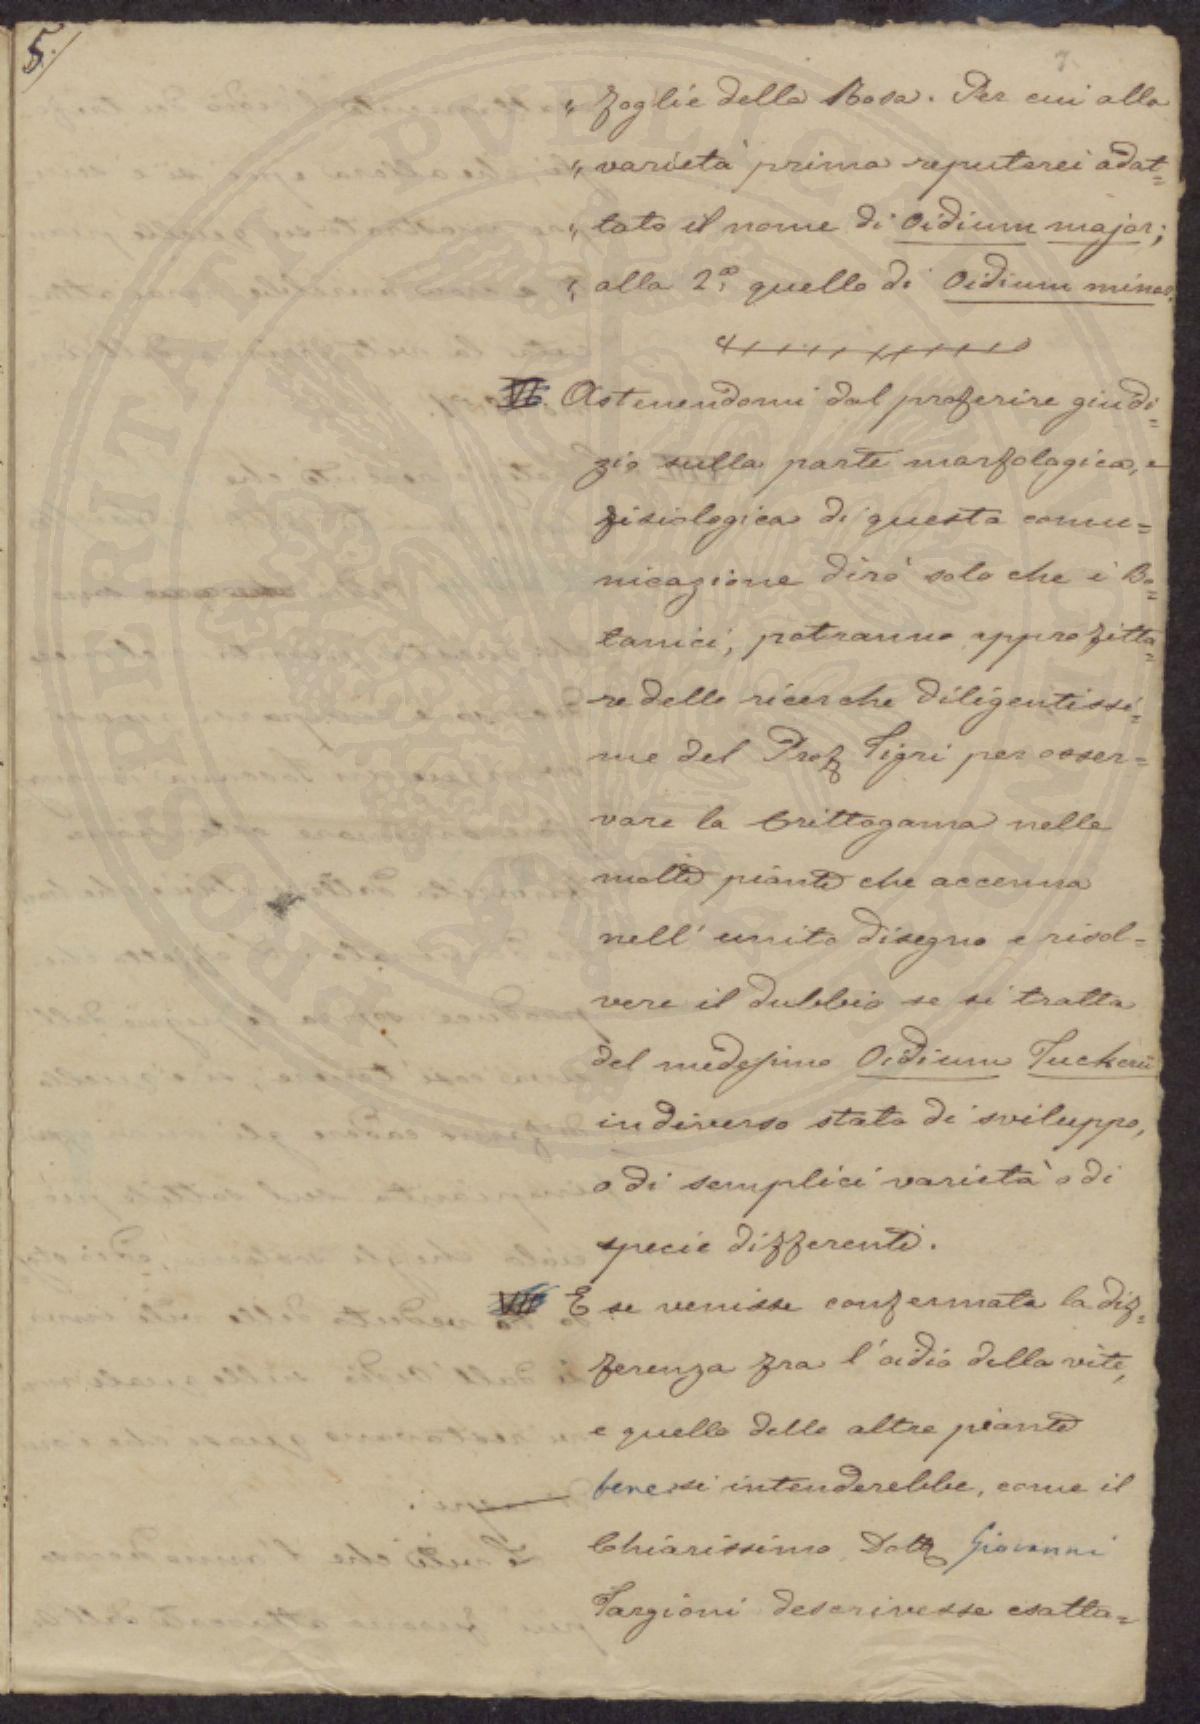 5.
7
" foglie della Rosa. Per cui alla
" varietà prima reputerei adat=
" tato il nome di Oidium major;
" alla 2ª quello di Oidium minor.
VI. Astenendomi dal proferire giudi=
zio sulla parte morfologica, e
fisiologica di questa comu=
nicazione dirò solo che i Bo=
tanici, potranno approfitta=
re delle ricerche diligentissi=
me del Prof Tigri per osser=
vare la Crittogama nelle
molte piante che accenna
nell' unito disegno e risol=
vere il dubbio se si tratta
del medesimo Oidium Tuckerii
in diverso stato di sviluppo,
o di semplici varietà o di
specie differenti.
VII E se venisse confermata la dif=
ferenza fra l'oidio della vite,
e quello delle altre piante
bene si intenderebbe, come il
Chiarissimo Dott Giovanni
Targioni descrivesse esatta=
PROSPERITATI PVBLICAE